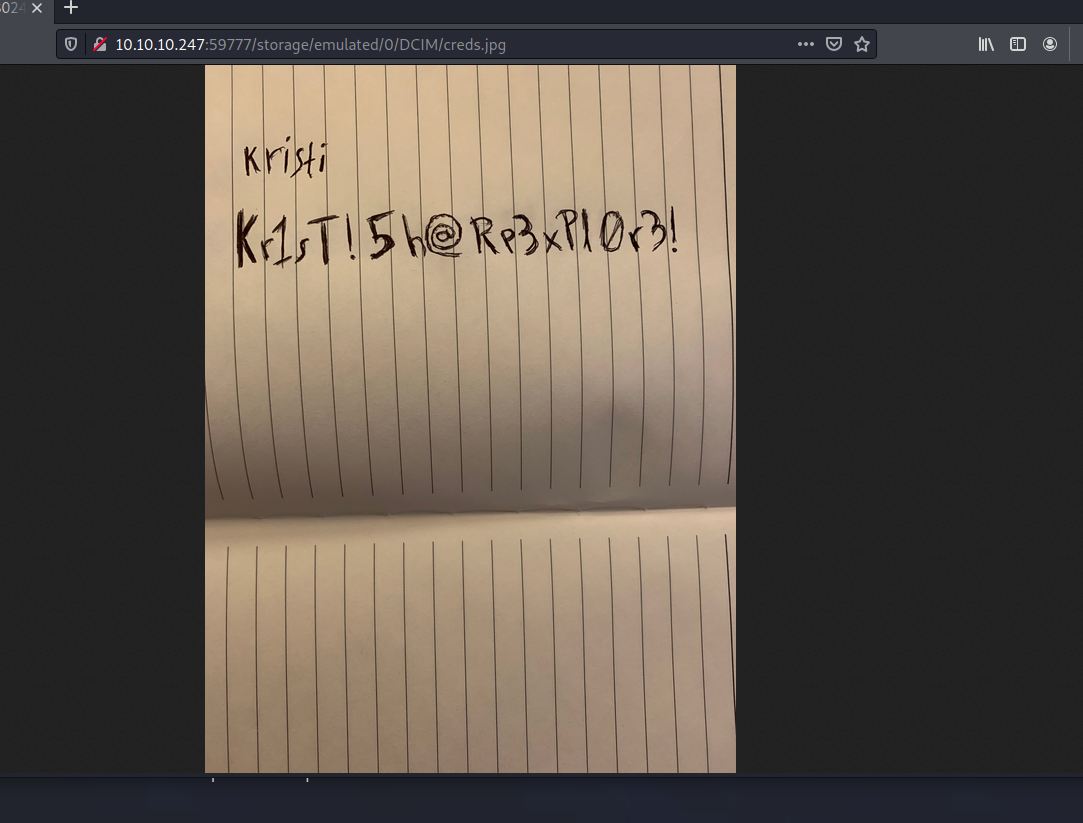 024
10.10.10.247:59777/storage/emulated/0/DCIM/creds.jpg
kristi
Kr1sT!5h@Rp3xPl0r3!